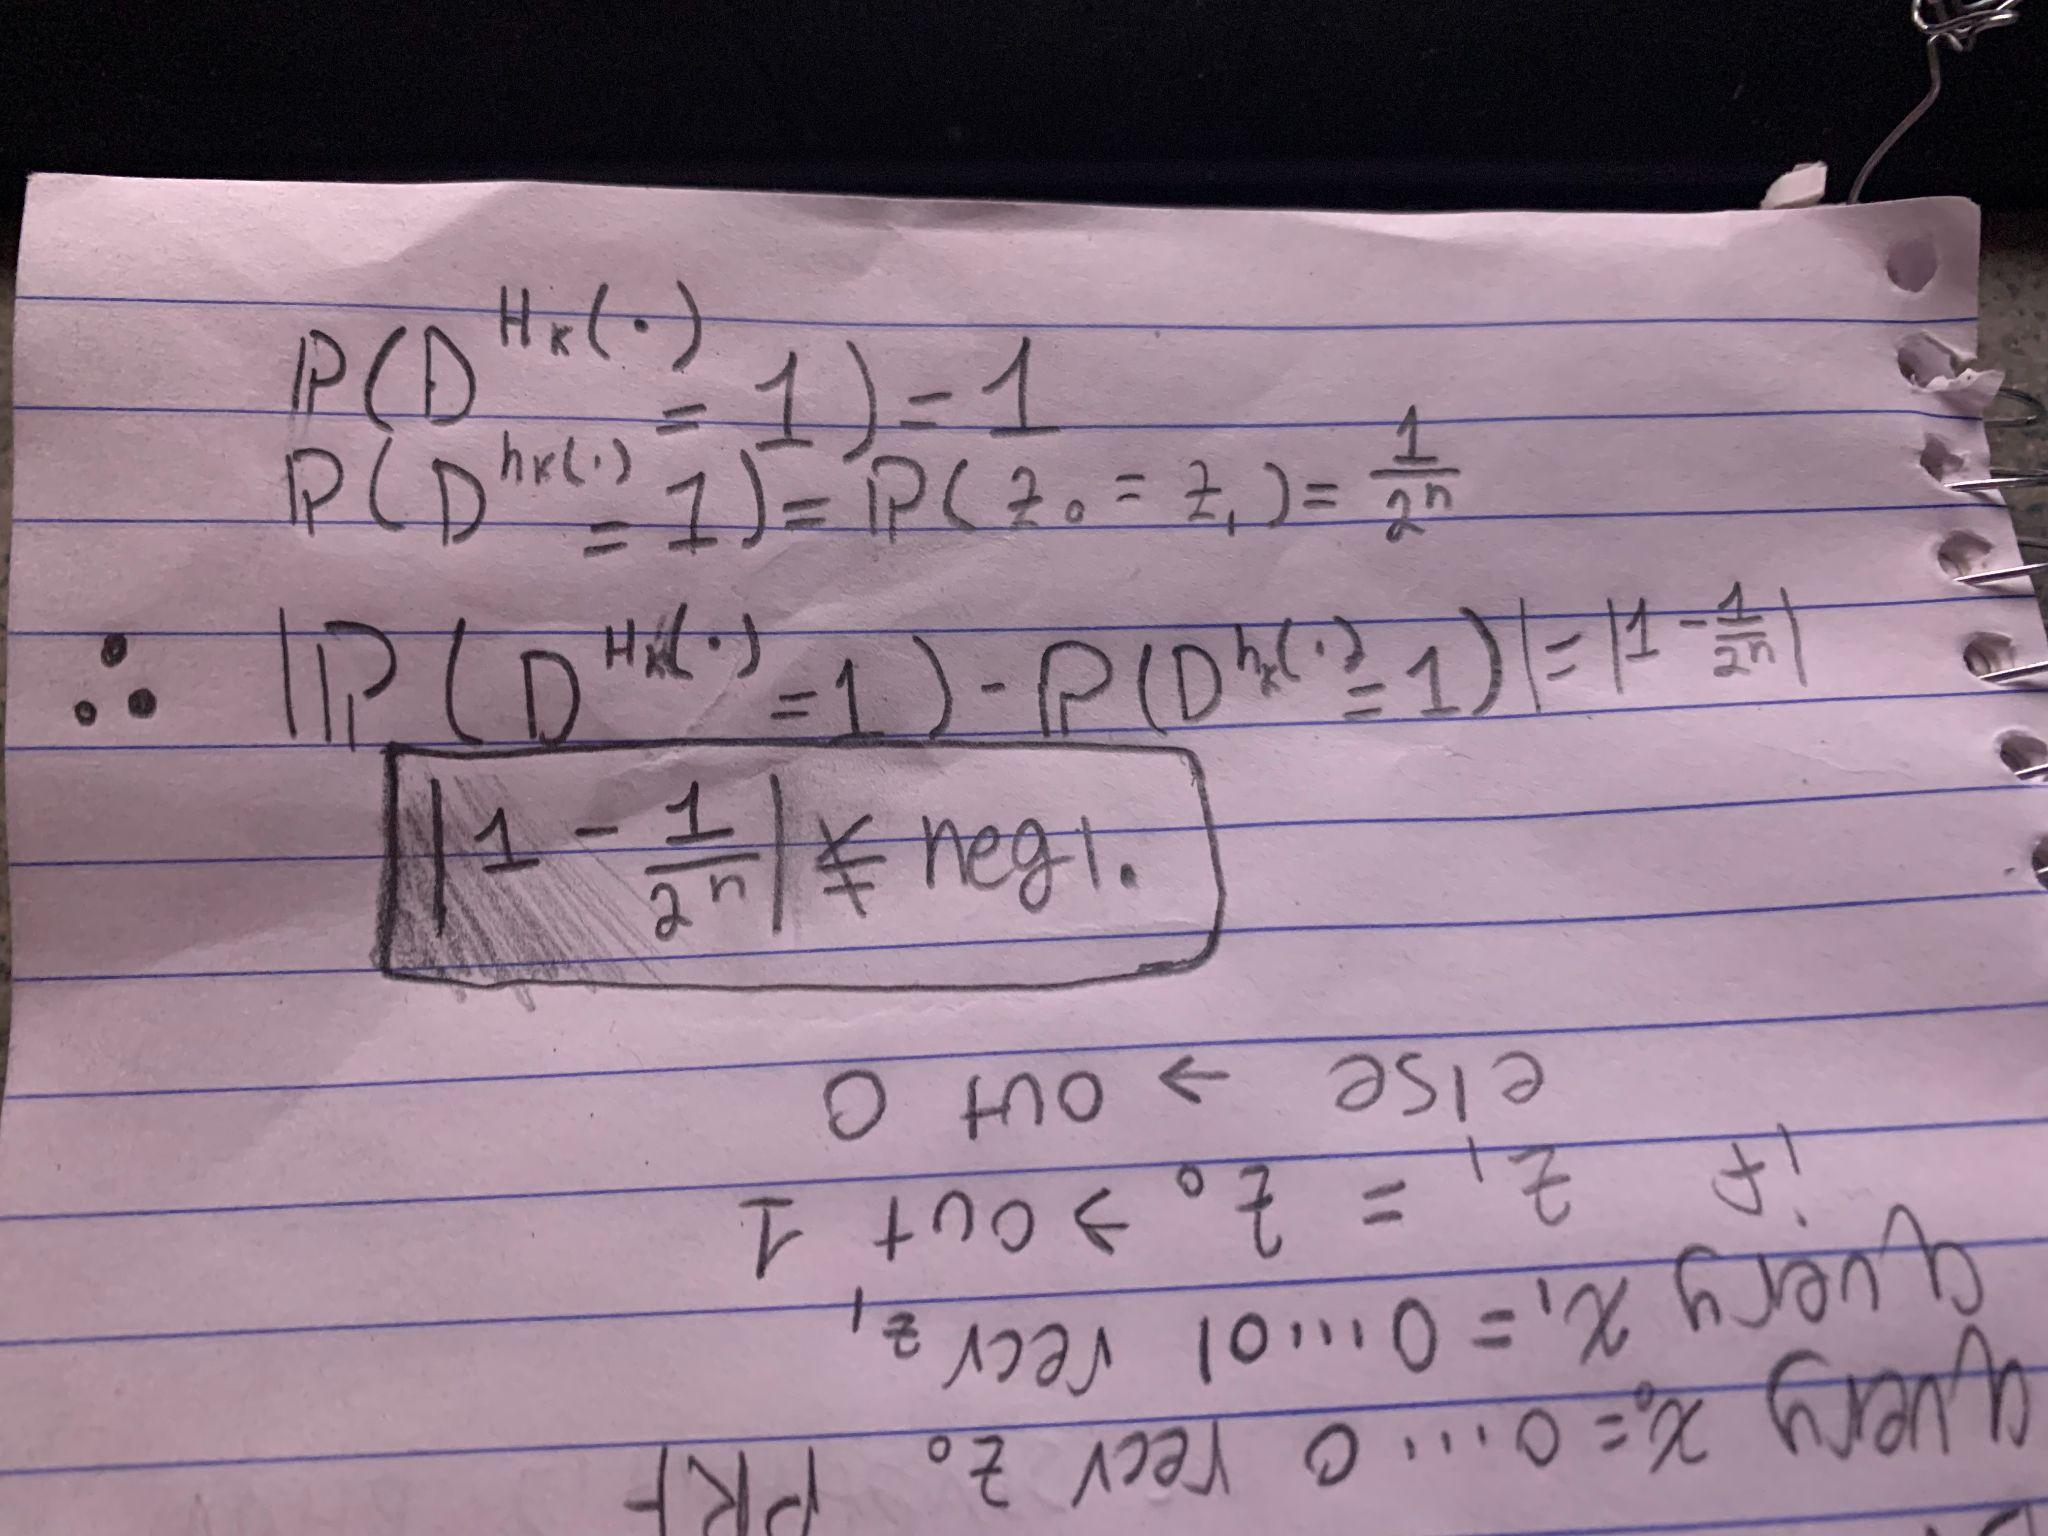 ℙ(D^{H_K(·)} = 1) = 1
ℙ(D^{h_K(·)} = 1) = ℙ(z₀ = z₁) = 1/2ⁿ
∴ |ℙ(D^{H_K(·)} = 1) - ℙ(D^{h_K(·)} = 1)| = |1 - 1/2ⁿ|
|1 - 1/2ⁿ| ≰ negl.
PRF
query x₀ = 0...0 recv z₀
query x₁ = 0...01 recv z₁
if z₁ = z₀ → out 1
else → out 0